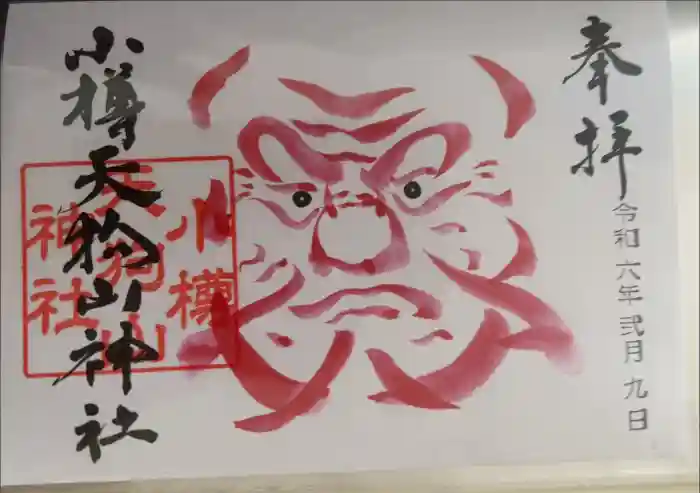 奉拝
令和六年弐月九日
小樽天狗山神社
小樽
天狗山
神社